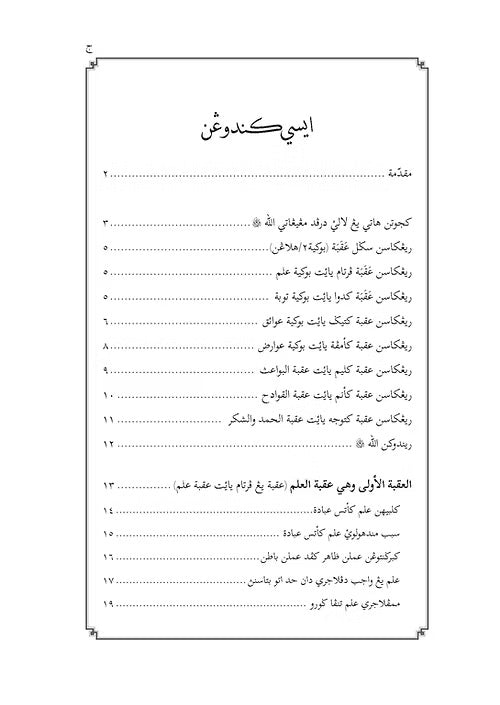 ج
ايسي كندوڠن
مقدّمة ................ ٢
كجوتن هاتي يڠ لالي درڤد مڠيڠاتي الله ﷻ ................ ٣
ريڠكاسن سكل عَقَبَة (بوكية٢/هلاڠن) ................ ٥
ريڠكاسن عَقَبَة ڤرتام يائيت بوكية علم ................ ٥
ريڠكاسن عَقَبَة كدوا يائيت بوكية توبة ................ ٥
ريڠكاسن عقبة كتيݢ يائيت بوكية عوائق ................ ٦
ريڠكاسن عقبة كأمڤة يائيت بوكية عوارض ................ ٨
ريڠكاسن عقبة كليم يائيت عقبة البواعث ................ ٩
ريڠكاسن عقبة كأنم يائيت عقبة القوادح ................ ١٠
ريڠكاسن عقبة كتوجه يائيت عقبة الحمد والشكر ................ ١١
ريندوكن الله ﷻ ................ ١٢
العقبة الأولى وهي عقبة العلم (عقبة يڠ ڤرتام يائيت عقبة علم) ................ ١٣
كلبيهن علم كأتس عبادة ................ ١٤
سبب مندهولوي علم كأتس عبادة ................ ١٥
كبرݢنتوڠن عملن ظاهر كڤد عملن باطن ................ ١٦
علم يڠ واجب دڤلاجري دان حد اتو بتاسنڽ ................ ١٧
ممڤلاجري علم تنڤا ݢورو ................ ١٩